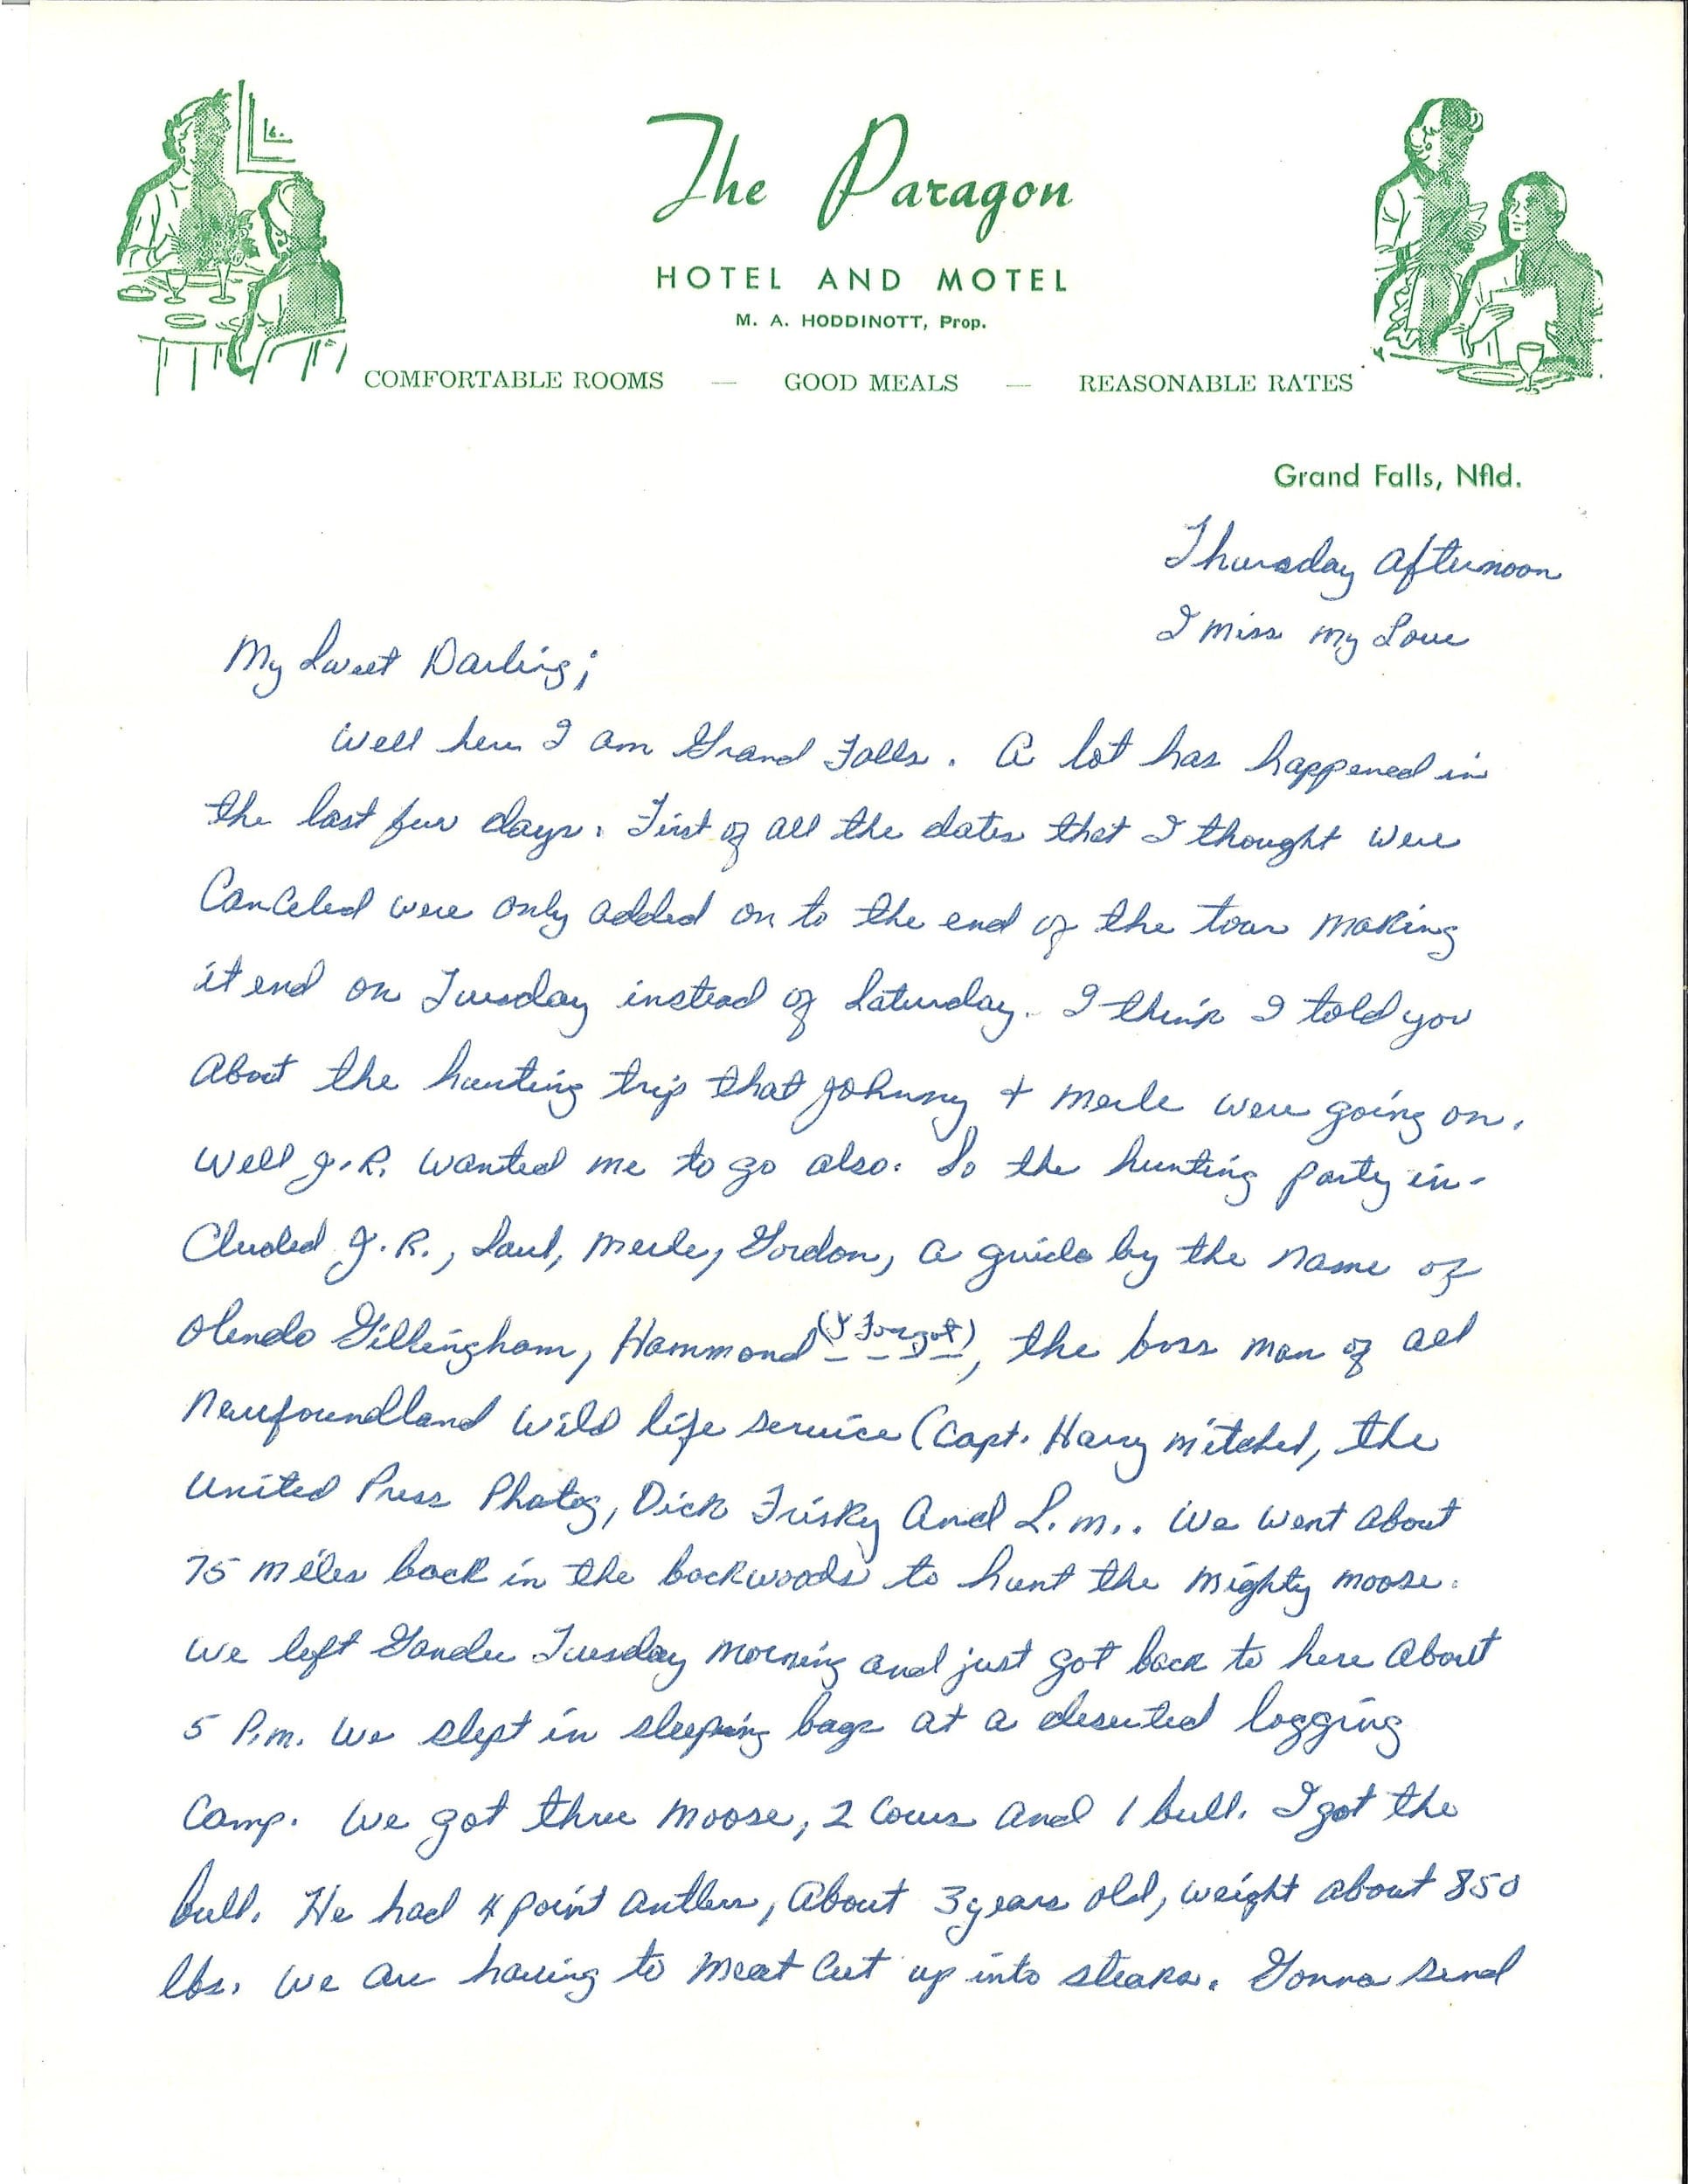 The Paragon
HOTEL AND MOTEL
M. A. HODDINOTT, Prop.
COMFORTABLE ROOMS — GOOD MEALS — REASONABLE RATES
Grand Falls, Nfld.
Thursday Afternoon
I miss my Love
My Sweet Darling;
Well here I am Grand Falls. A lot has happened in
the last few days. First of all the dates that I thought were
Canceled were only added on to the end of the tour making
it end on Tuesday instead of Saturday. I think I told you
About the hunting trip that Johnny + Merle were going on.
Well J.R. wanted me to go also. So the hunting party in-
cluded J.R., Saul, Merle, Gordon, a guide by the name of
Olendo Gillingham, Hammond (I Forgot), the boss man of all
Newfoundland Wild life service (Capt. Harry Mitchel, the
United Press Photog, Dick Frisky And L.M.. We went about
75 miles back in the backwoods to hunt the mighty moose.
We left Gander Tuesday morning and just got back to here about
5 P.m. We slept in sleeping bags at a deserted logging
Camp. We got three moose, 2 cows and 1 bull. I got the
bull. He had 4 point antlers, About 3 years old, weight about 850
lbs. We are having to meat cut up into steaks. Gonna send